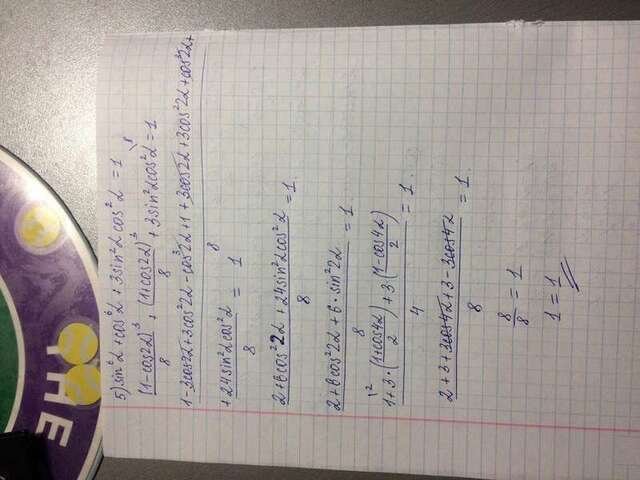 5) sin⁶α + cos⁶α + 3sin²α cos²α = 1
(1-cos2α)³/8 + (1+cos2α)³/8 + 3sin²αcos²α \8 = 1
1-3cos2α+3cos²2α-cos³2α+1+3cos2α+3cos²2α+cos³2α+
+24sin²αcos²α / 8 = 1 8
2+6cos²2α+24sin²αcos²α / 8 = 1.
2+6cos²2α+6·sin²2α / 8 = 1
1+3·((1+cos4α)/2)+3·((1-cos4α)/2) / 4 = 1.
2+3+3cos4α+3-3cos4α / 8 = 1.
8/8 = 1
1=1
THE